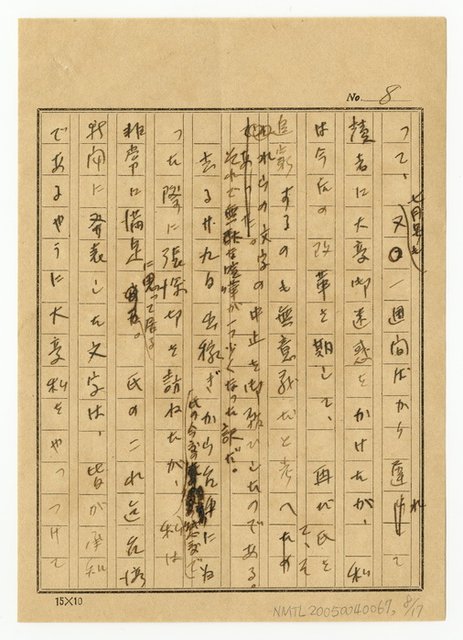 No. 8
つて、又〇一週間ばかり遅れて
七月号も
読者に大変御迷惑をかけたが、私
は今后の改革を期して、再び氏を
追窮するのも無意義だと考へたの
で、それらの文字の中止を御願ひしたのである。
それで無駄な喧嘩が一つ少くなつた訳だ。
去る廿九日出稼ぎから台中に為
つた際に張深切を訪ねたが、私は
氏の今度の態度で
非常に満足に思つて居る。氏のこれ迄台湾
新聞に発表した文字は、皆が楊和
であるやうに大変私をやつつけて
15×10
NMTL20050040067, 8/17